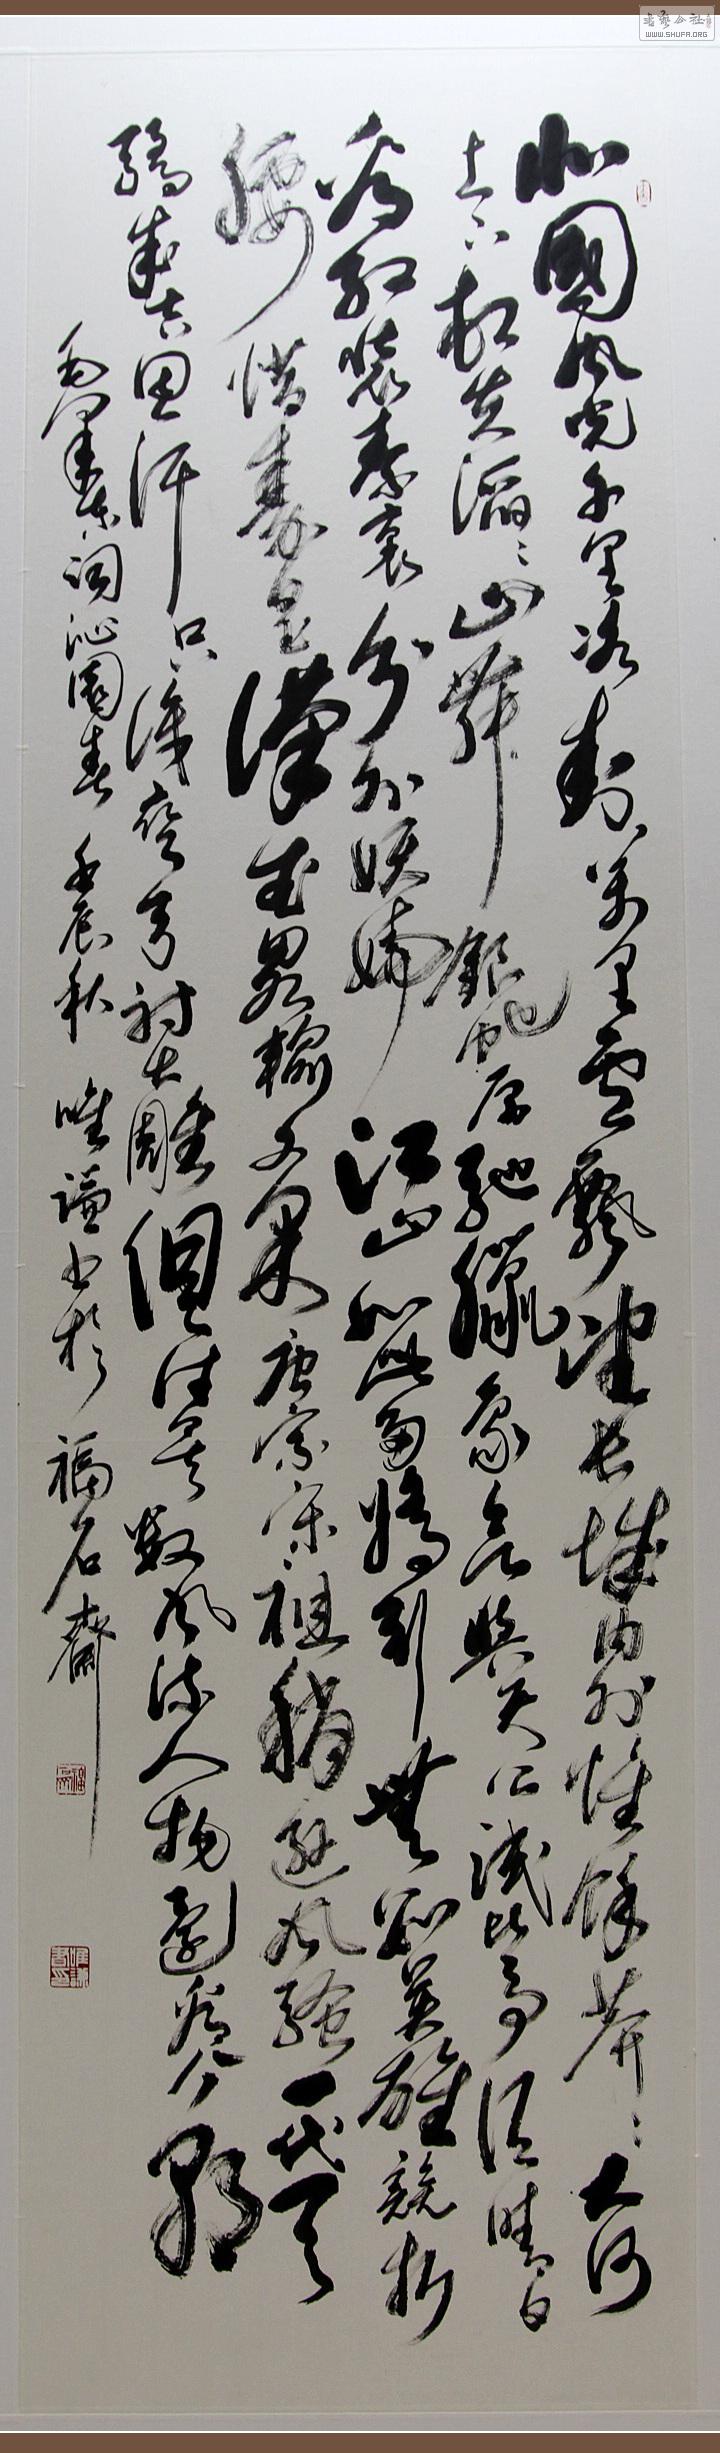 北國風光千里冰封萬里雪飄望長城内外惟餘莽〻大河
上下頓失滔〻山舞銀蛇原馳臘象欲與天公試比高須晴日
看紅裝素裹分外妖嬈江山如此多嬌引無數英雄競折
腰惜秦皇漢武畧輸文采唐宗宋祖稍遜風騷一代天
驕成吉思汗只識彎弓射大雕俱往矣數風流人物還看今朝
毛澤東詞沁園春 壬辰秋 唯謙書於 福石齋
WWW.SHUFA.ORG